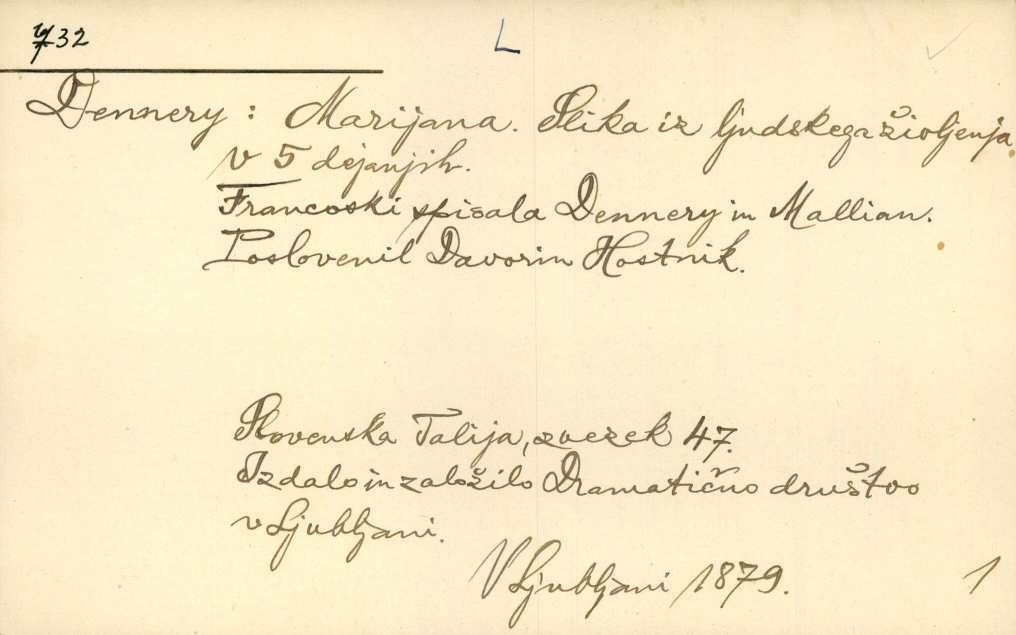 732
L
Dennery: Marijana. Slika iz ljudskega življenja
v 5 dejanjih.
Francoski spisala Dennery in Mallian.
Poslovenil Davorin Hostnik.
Slovenska Talija, zvezek 47.
Izdalo in založilo Dramatično društvo
v Ljubljani.
V Ljubljani 1879.
1